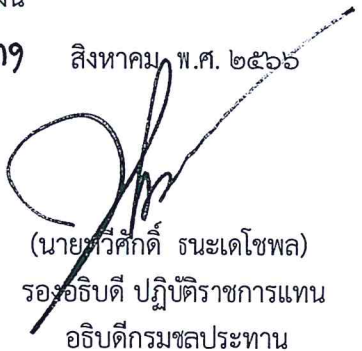 สิงหาคม พ.ศ. ๒๕๖๖
(นายทวีศักดิ์ ธนะเดโชพล)
รองอธิบดี ปฏิบัติราชการแทน
อธิบดีกรมชลประทาน